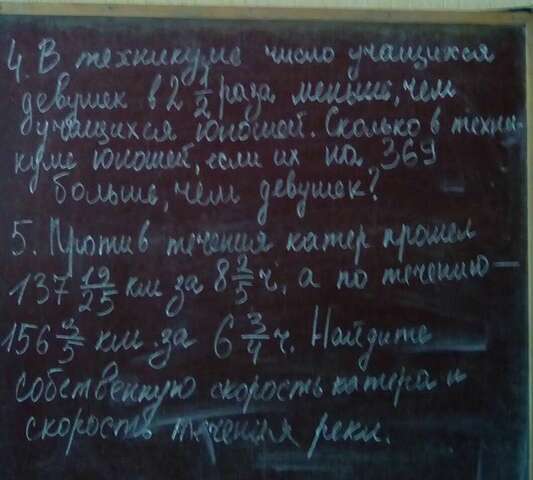 4. В техникуме число учащихся
девушек в 2 1/2 раза меньше, чем
учащихся юношей. Сколько в техни-
куме юношей, если их на 369
больше, чем девушек?
5. Против течения катер прошел
137 19/25 км за 8 3/5 ч, а по течению —
156 3/5 км за 6 3/4 ч. Найдите
собственную скорость катера и
скорость течения реки.